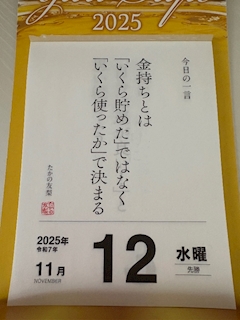 2025
今日の一言
金持ちとは
「いくら貯めた」ではなく
「いくら使ったか」で決まる
たかの友梨
2025年
令和7年
11月
NOVEMBER
12
水曜
先勝